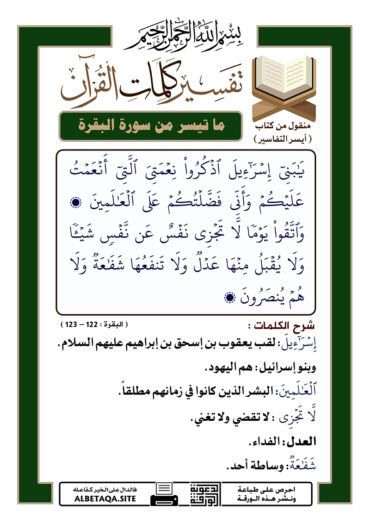 بسم الله الرحمن الرحيم
تفسير كلمات القرآن
منقول من كتاب
( أيسر التفاسير )
ما تيسر من سورة البقرة
يَٰبَنِىٓ إِسْرَٰٓءِيلَ ٱذْكُرُوا۟ نِعْمَتِىَ ٱلَّتِىٓ أَنْعَمْتُ
عَلَيْكُمْ وَأَنِّى فَضَّلْتُكُمْ عَلَى ٱلْعَٰلَمِينَ
وَٱتَّقُوا۟ يَوْمًا لَّا تَجْزِى نَفْسٌ عَن نَّفْسٍ شَيْـًٔا
وَلَا يُقْبَلُ مِنْهَا عَدْلٌ وَلَا تَنفَعُهَا شَفَٰعَةٌ وَلَا
هُمْ يُنصَرُونَ
( البقرة : 122 – 123 )
شرح الكلمات :
إِسْرَٰٓءِيلَ: لقب يعقوب بن إسحق بن إبراهيم عليهم السلام.
وبنو إسرائيل : هم اليهود.
ٱلْعَٰلَمِينَ: البشر الذين كانوا في زمانهم مطلقاً.
لَّا تَجْزِى : لا تقضي ولا تغني.
العدل : الفداء.
شَفَٰعَةٌ: وساطة أحد.
احرص على طباعة
ونشر هذه الورقة
الدعوية
الورقة
فالدال على الخير كفاعله
ALBETAQA.SITE